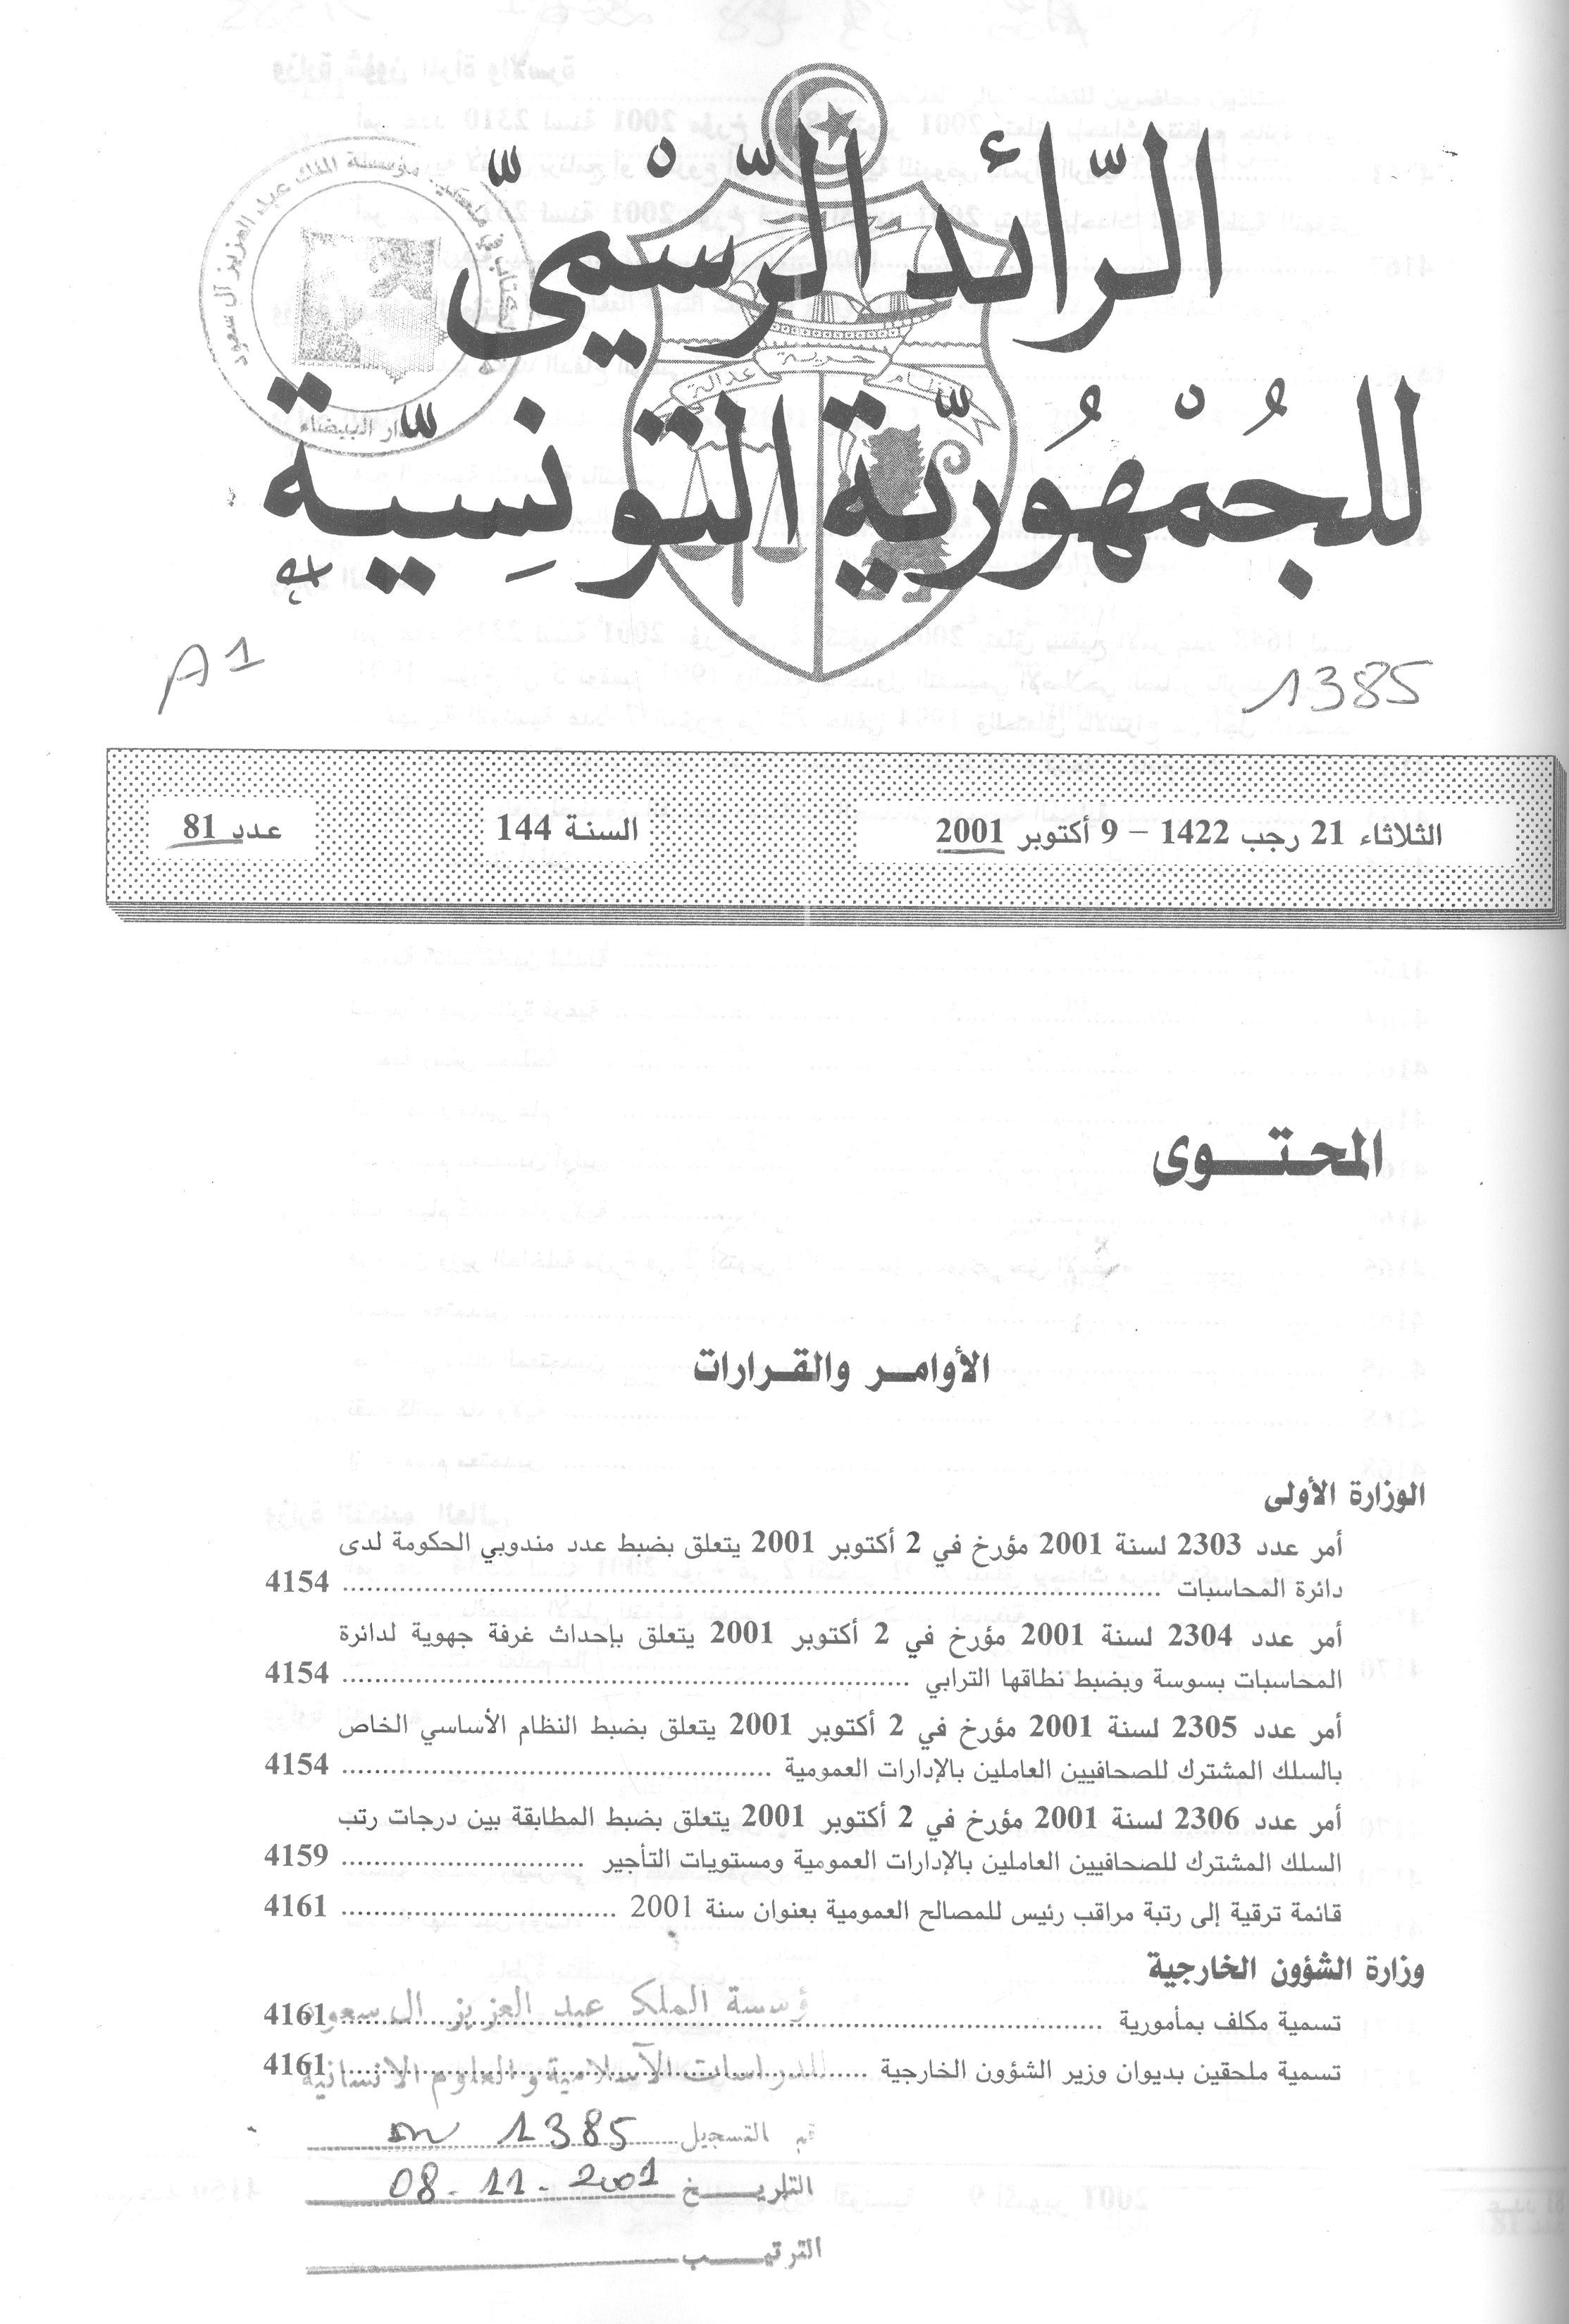 الرّائد الرّسْميّ
للجُمْهُوريّة التّونِسيّة
نظام حرية عدالة
مؤسسة الملك عبد العزيز آل سعود
الدار البيضاء
A1
1385
الثلاثاء 21 رجب 1422 – 9 أكتوبر 2001
السنة 144
عدد 81
المحتوى
الأوامر والقرارات
الوزارة الأولى
أمر عدد 2303 لسنة 2001 مؤرخ في 2 أكتوبر 2001 يتعلق بضبط عدد مندوبي الحكومة لدى
دائرة المحاسبات ........ 4154
أمر عدد 2304 لسنة 2001 مؤرخ في 2 أكتوبر 2001 يتعلق بإحداث غرفة جهوية لدائرة
المحاسبات بسوسة وبضبط نطاقها الترابي ........ 4154
أمر عدد 2305 لسنة 2001 مؤرخ في 2 أكتوبر 2001 يتعلق بضبط النظام الأساسي الخاص
بالسلك المشترك للصحافيين العاملين بالإدارات العمومية ........ 4154
أمر عدد 2306 لسنة 2001 مؤرخ في 2 أكتوبر 2001 يتعلق بضبط المطابقة بين درجات رتب
السلك المشترك للصحافيين العاملين بالإدارات العمومية ومستويات التأجير ........ 4159
قائمة ترقية إلى رتبة مراقب رئيس للمصالح العمومية بعنوان سنة 2001 ........ 4161
وزارة الشؤون الخارجية
تسمية مكلف بمأمورية ........ 4161
تسمية ملحقين بديوان وزير الشؤون الخارجية ........ 4161
مؤسسة الملك عبد العزيز ال سعود
للدراسات الآسلامية والعلوم الانسانية
رقم التسجيل 1385
التاريخ 08-11-2001
الترتيب